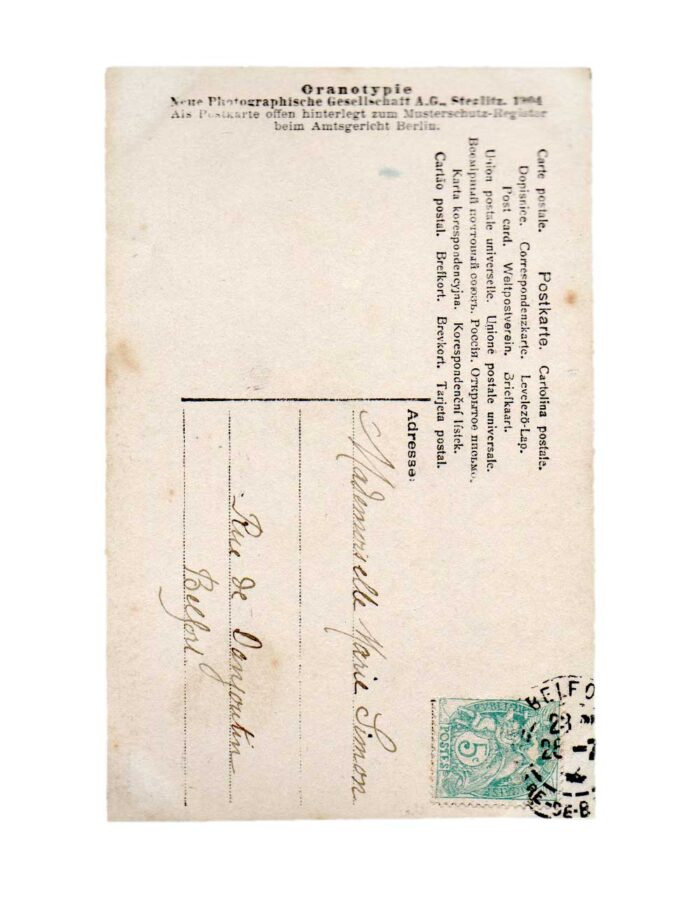 Oranotypie
Neue Photographische Gesellschaft A.G., Steglitz. 1904
Als Postkarte offen hinterlegt zum Musterschutz-Register
beim Amtsgericht Berlin.
Postkarte. Cartolina postale.
Carte postale.
Dopisnice. Correspondenzkarte. Levelező-Lap.
Post card. Weltpostverein. Briefkaart.
Union postale universelle. Unione postale universale.
Всемірный почтовый союзъ. Россія. Открытое письмо.
Karta korespondencyjna. Korespondenční lístek.
Cartão postal. Brefkort. Brevkort. Tarjeta postal.
Adresse:
Mademoiselle Marie Simon
Rue de Danjoutin
Belfort
5c
POSTES
BELFO